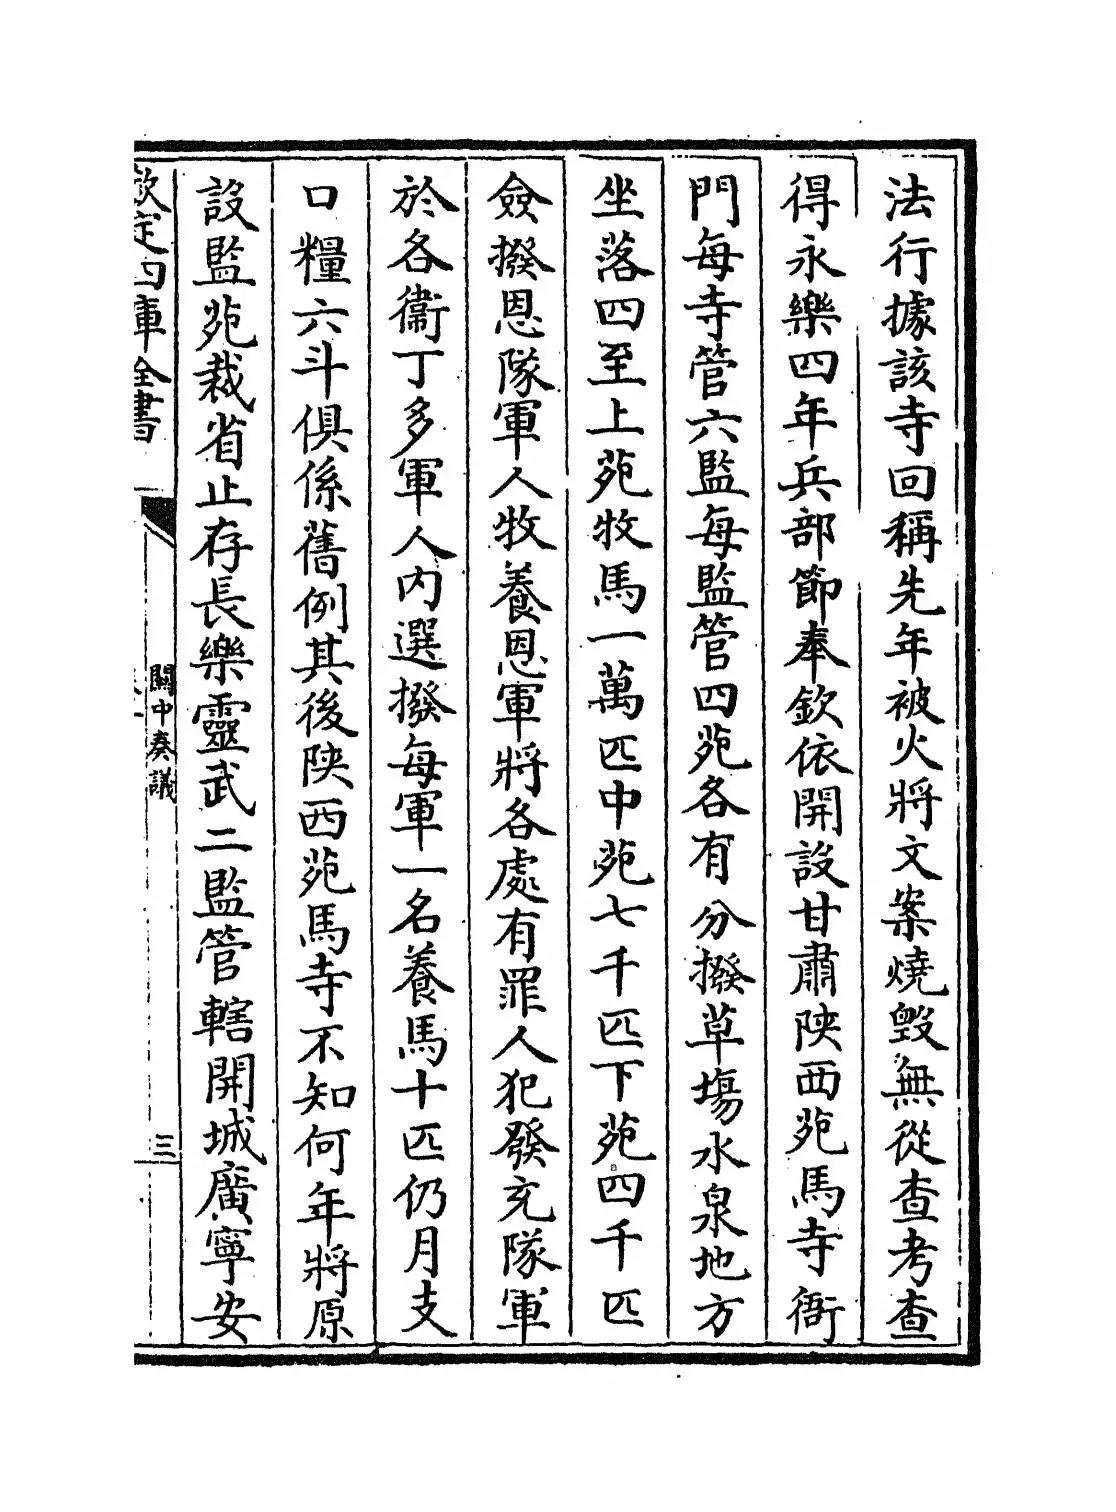 法行據該寺回稱先年被火將文案燒毀無從查考查
得永樂四年兵部節奉欽依開設甘肅陜西苑馬寺衙
門每寺管六監每監管四苑各有分撥草塲水泉地方
坐落四至上苑牧馬一萬匹中苑七千匹下苑四千匹
僉撥恩隊軍人牧養恩軍將各處有罪人犯發充隊軍
於各衞丁多軍人內選撥每軍一名養馬十匹仍月支
口糧六斗俱係舊例其後陜西苑馬寺不知何年將原
設監苑裁省止存長樂靈武二監管轄開城廣寧安
欽定四庫全書
關中奏議
三